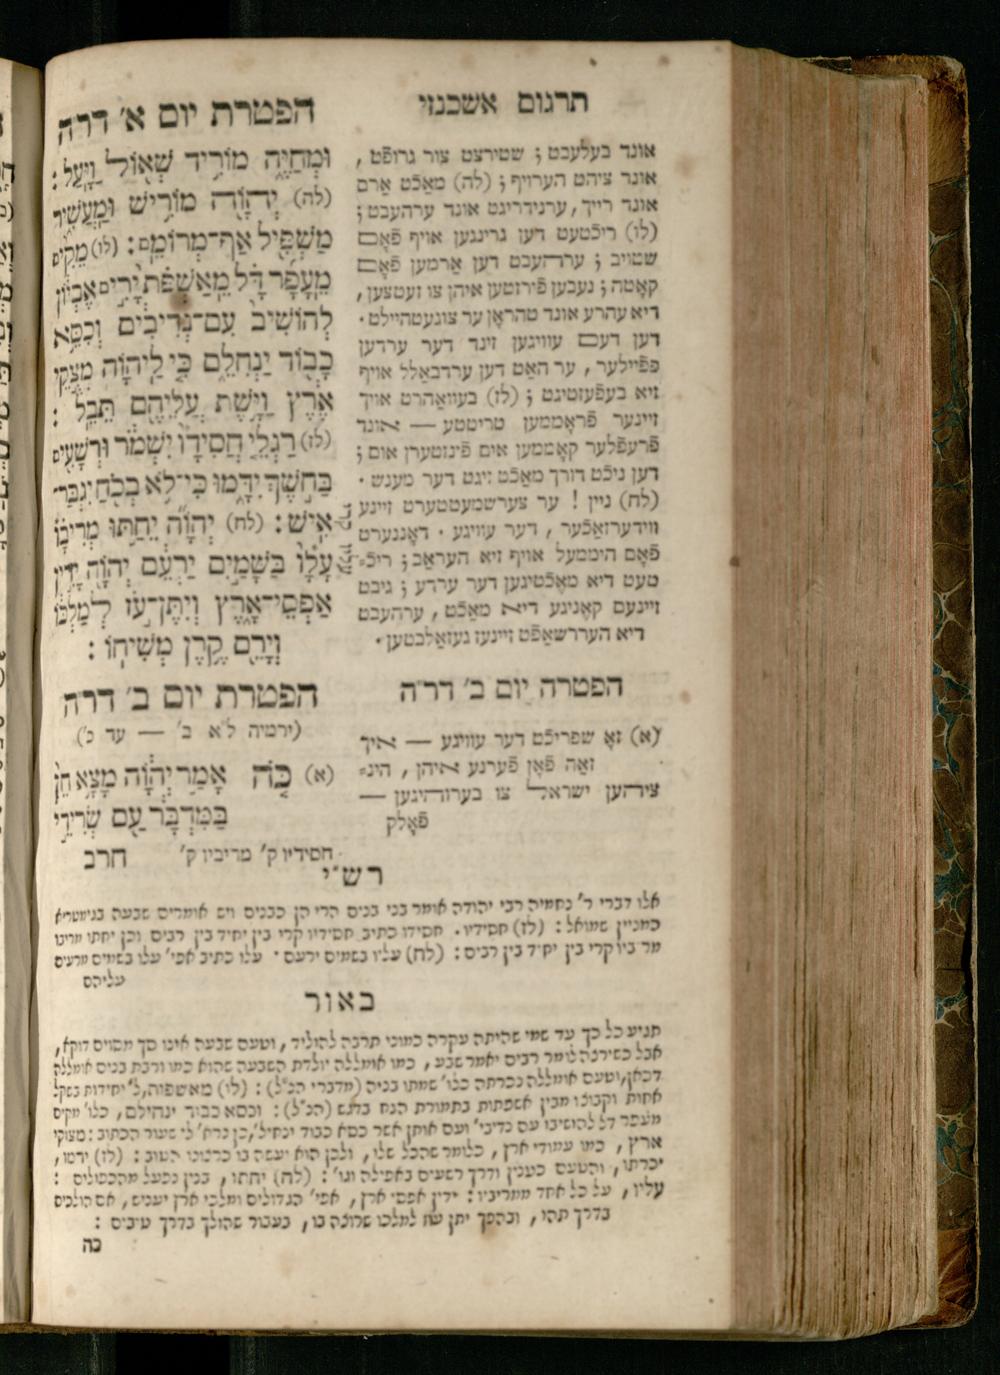 הפטרת יום א׳ דר״ה
וּמְחַיֶּה מוֹרִיד שְׁאוֹל וַיָּעַל :
(לה) יְהוָֹה מוֹרִישׁ וּמַעֲשִׁיר
מַשְׁפִּיל אַף־מְרוֹמֵם : (לו) מֵקִים
מֵעָפָר דָּל מֵאַשְׁפֹּת יָרִים אֶבְיוֹן
לְהוֹשִׁיב עִם־נְדִיבִים וְכִסֵּא
כָבוֹד יַנְחִלֵם כִּי לַיהוָֹה מְצֻקֵי
אֶרֶץ וַיָּשֶׁת עֲלֵיהֶם תֵּבֵל :
(לז) רַגְלֵי חֲסִידָו יִשְׁמֹר וּרְשָׁעִים
בַּחֹשֶׁךְ יִדָּמּוּ כִּי־לֹא בְכֹחַ יִגְבַּר־
אִישׁ : (לח) יְהוָֹה יֵחַתּוּ מְרִיבָו
עָלָו בַּשָּׁמַיִם יַרְעֵם יְהוָֹה יָדִין
אַפְסֵי־אָרֶץ וְיִתֶּן־עֹז לְמַלְכּוֹ
וְיָרֵם קֶרֶן מְשִׁיחוֹ :
הפטרת יום ב׳ דר״ה
(ירמיה ל״א ב׳ — עד כ׳)
(א) כֹּה אָמַר יְהוָֹה מָצָא חֵן
בַּמִּדְבָּר עַם שְׂרִידֵי
חרב
חסידיו ק׳ מריביו ק׳
תרגום אשכנזי
אונד בעלעבט ; שטירצט צור גרופֿט ,
אונד ציהט הערויף ; (לה) מאַכֿט אַרם
אונד רייך , ערנידריגט אונד ערהעבט ;
(לו) ריכֿטעט דען גרינגען אויף פֿאָם
שטויב ; ערהעבט דען אַרמען פֿאָם
קאָטה ; נעבען פֿירזטען איהן צו זעטצען ,
דיא עהרע אונד טהראָן ער צוגעטהיילט .
דען דעם עוויגען זינד דער ערדען
פפֿיילער , ער האַט דען ערדבאַלל אויף
זיא בעפֿעזטיגט ; (לז) בעוואַהרט אויך
זיינער פֿראָממען טריטטע — אונד
פֿרעפֿלער קאָממען אים פֿינזטערן אום ;
דען ניכֿט דורך מאַכֿט זיגט דער מענש .
(לח) ניין ! ער צערשמעטטערט זיינע
ווידערזאַכֿער , דער עוויגע . דאָננערט
פֿאָם הימμעל אויף זיא העראַב ; ריכֿ=
טעט דיא מאַכֿטיגען דער ערדע ; גיבט
זיינעם קאָניגע דיא מאַכֿט , ערהעבט
דיא הערשאַפֿט זיינעז געזאַלבטען .
הפטרה יום ב׳ דר״ה
(א) זאָ שפריכֿט דער עוויגע — איך
זאַה פֿאָן פֿערנע איהן , הינ=
ציהען ישראל צו בערוהיגען —
פֿאָלק
רש״י
אלו דברי ר׳ נחמיה רבי יהודה אומר בני בנים הרי הן כבנים ויש אומרים שבעה בגימטריא
כמניין שמואל : (לז) חסידיו . חסידו כתיב חסידיו קרי בין יחיד בין רבים וכן יחתו מריבו
מריביו קרי בין יחיד בין רבים : (לח) עליו בשמים ירעם . עלו כתיב אפי׳ עלו בשמים מרעים
עליהם
באור
תגיע כל כך עד שמי שהיתה עקרה כמוני תרבה להוליד , וטעם שבעה אינו סך מסוים דוקא ,
אבל כשירצה לומר רבים יאמר שבע , כמו אומללה יולדת השבעה שהוא כמו ורבת בנים אומללה
דכאן , וטעם אומללה נכרתה כלו׳ שמתו בניה (מדברי הנ״ל) : (לו) מאשפות , ל׳ יחידות בשקל
אחות וקבוצו מבין אשפתות בתמורת הנח בדגש (הנ״ל) : וכסא כבוד ינחילם , כלו׳ מקים
מעפר דל להושיבו עם נדיבי׳ ועם אותן אשר כסא כבוד ינחיל׳ , כן נרא׳ לי שעור הכתוב : מצוקי
ארץ , כמו עמודי ארץ , כלומר שהכל שלו , ולכן הוא יעשה בו כרצונו הטוב : (לז) ידמו ,
יכרתו , והטעם כענין ודרך רשעים באפילה וגו׳ : (לח) יחתו , בנין נפעל מהכפולים :
עליו , על כל אחד ממריביו : ידין אפסי ארץ , אפי׳ הגדולים ומלכי ארץ יעניש , אם הולכים
בדרך תהו , ובהפך יתן עז למלכו שרוצה בו , בעבור שהולך בדרך טובים :
כה